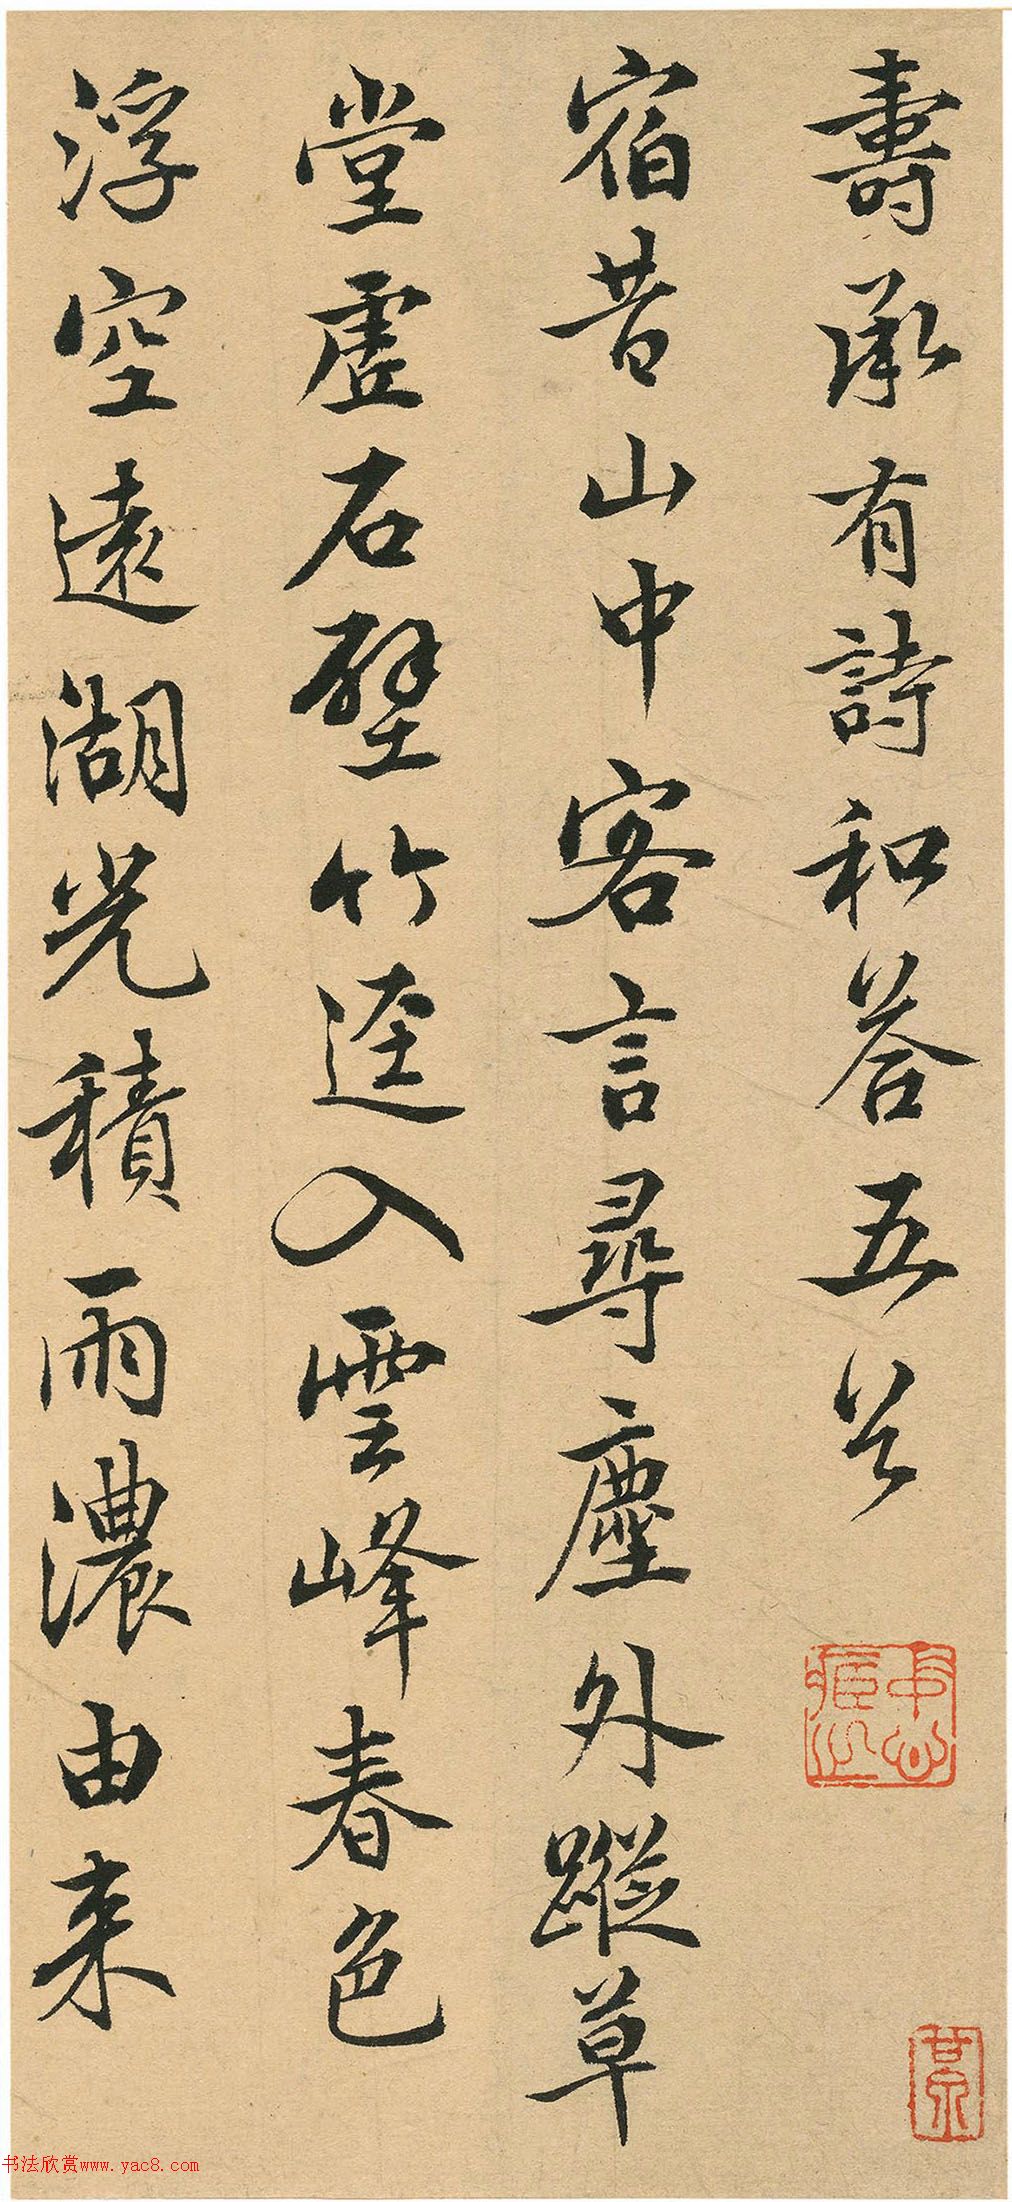 壽承有詩和荅五首
宿昔山中客言尋塵外蹤草
堂虛石壁竹逕入雲峰春色
浮空遠湖光積雨濃由來
书法欣赏www.yac8.com